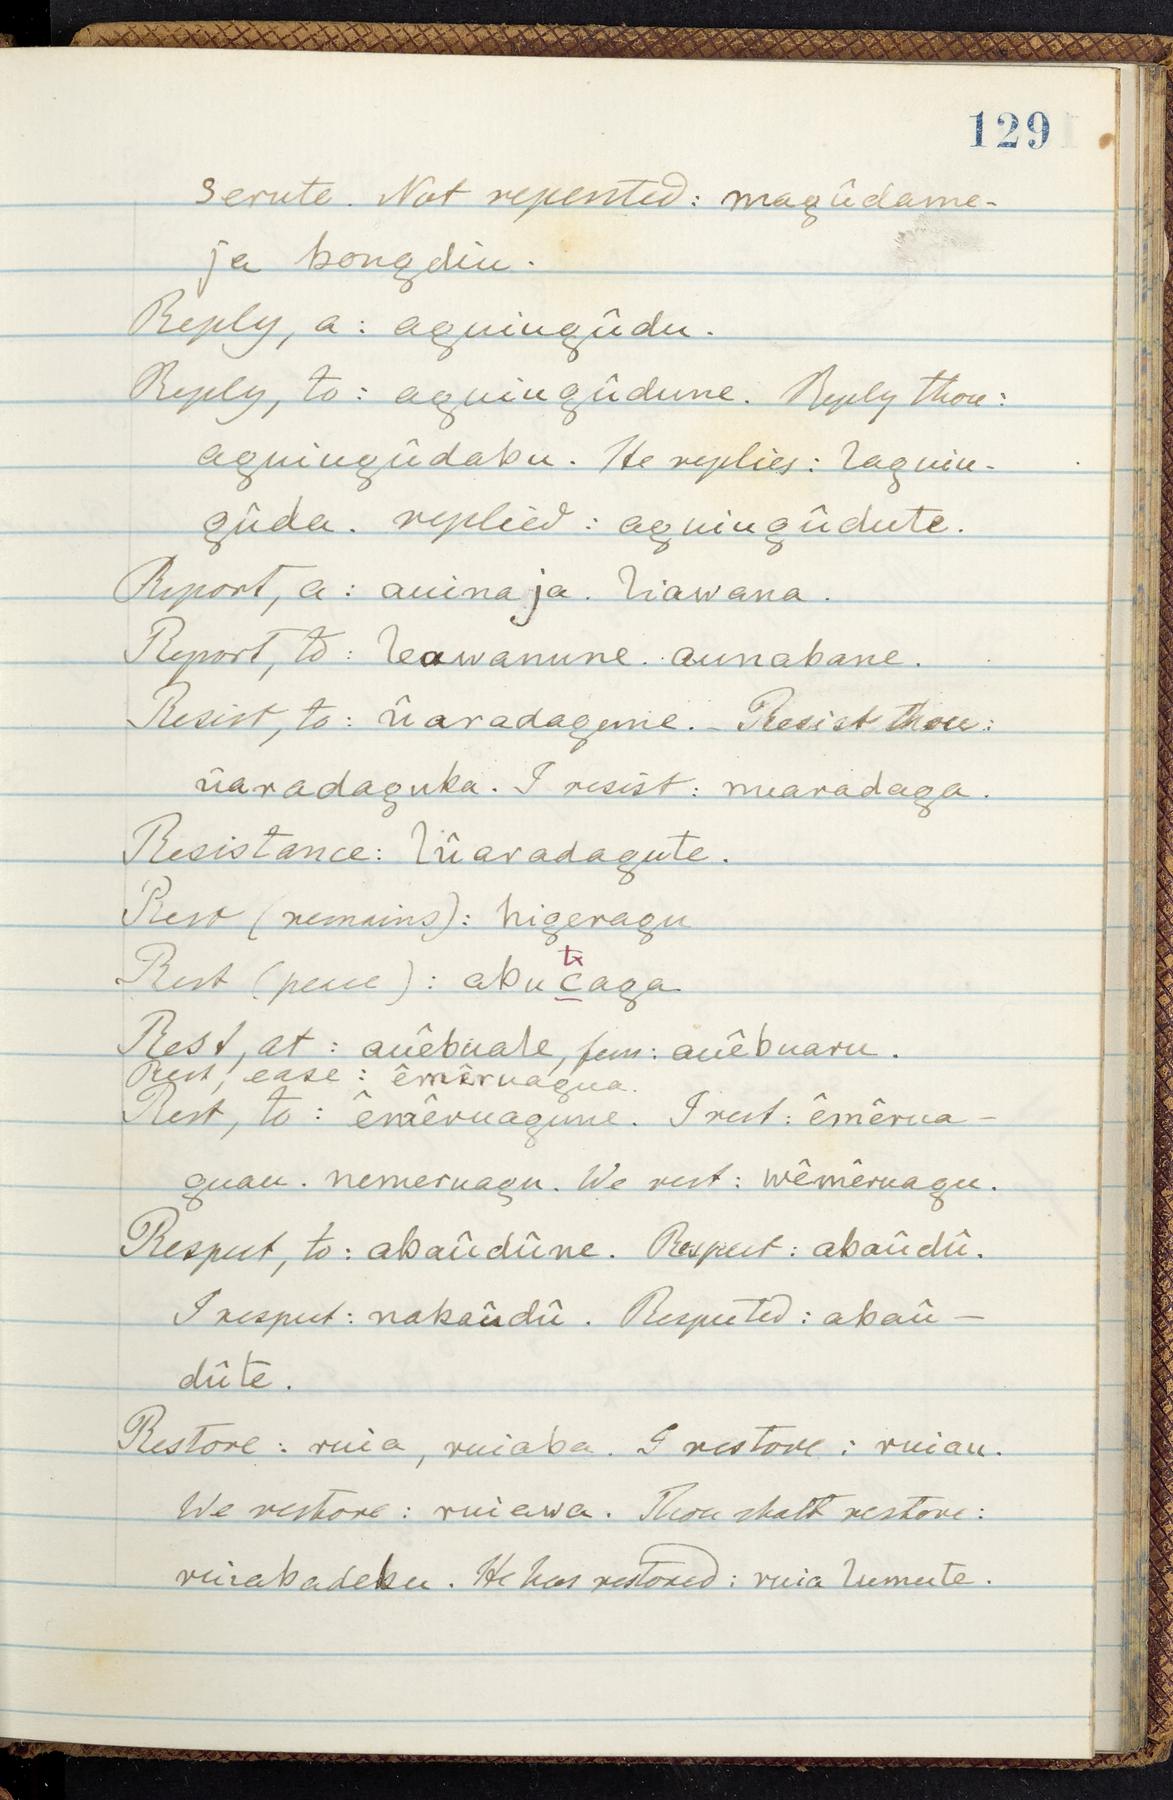 129
serute. Not repented: magûdame-
ja kongdiu.
Reply, a: aguiugûdu.
Reply, to: aguiugûdune. Reply thou:
aguiugûdaku. He replies: laguiu-
gûda. replied: aguiugûdute.
Report, a: auinaja. liawana.
Report, to: leawanune. aunabane.
Resist, to: ûaradagune. - Resist thou:
ûaradaguka. I resist: nuaradaga.
Resistance: lûaradagute.
Rest (remains): higeragu
Rest (peace): akucaga
Rest, at: auêbuale, fem: auêbuaru.
Rest, ease: êmêruagua.
Rest, to: êmêruagune. I rest: êmêrua-
guau. nemeruagu. We rest: wêmêruagu.
Respect, to: abaûdûne. Respect: abaûdû.
I respect: nabaûdû. Respected: abaû-
dûte.
Restore: ruia, ruiaba. I restore: ruiau.
We restore: ruiawa. Thou shalt restore:
ruiabadebu. He has restored: ruia lumute.